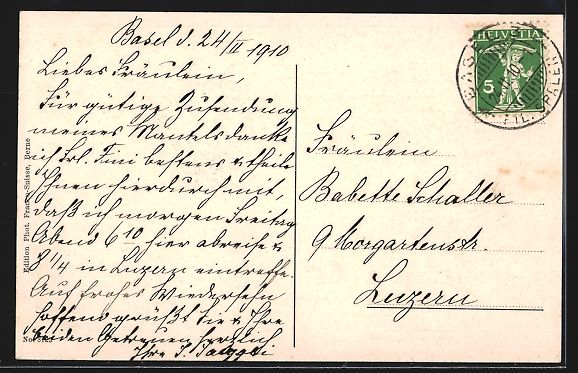 Basel d. 24/II 1910
Liebes Fräulein,
Für gütige Zusendung
meines Mantels danke
ich Frl. Tini bestens & theile
Ihnen hierdurch mit,
daß ich morgen Freitag
Abend 6 10 hier abreise &
8 1/4 in Luzern eintreffe.
Auf frohes Wiedersehn
hoffend grüßt Sie & Ihre
beiden Getreuen herzlich
Ihre S.
Edition Phot. Franco-Suisse, Berne
No
HELVETIA
5
BASEL
FIL.
Fräulein
Babette Schaller
9 Morgartenstr.
Luzern